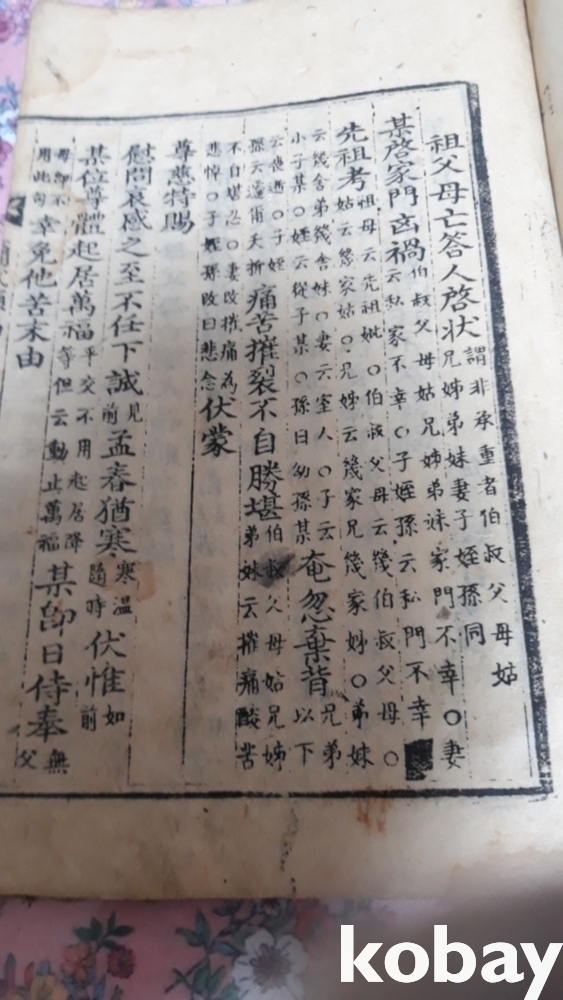 祖父母亡答人啓狀
謂非承重者伯叔父母姑
兄姊弟妹妻子姪孫同
某啓家門凶禍
伯叔父母姑兄姊弟妹家門不幸○妻
云私家不幸○子姪孫云私門不幸
先祖考
祖母云先祖妣○伯叔父母云幾伯叔父母○
姑云幾家姑○兄姊云幾家兄幾家姊○弟妹
云幾舍弟幾舍妹○妻云室人○子云
小子某○姪云從子某○孫曰幼孫某
奄忽棄背
兄弟
以下
云喪逝○子姪
孫云遽爾夭折
痛苦摧裂不自勝堪
伯叔父母姑兄姊
弟妹云摧痛酸苦
不自堪忍○妻改摧痛為
悲悼○子姪孫改曰悲念
伏蒙
尊慈特賜
慰問哀感之至不任下誠
見
前
孟春猶寒
寒溫
隨時
伏惟
如
前
某位尊體起居萬福
平交不用起居降
等但云動止萬福
某即日侍奉
無
父
母即不
用此句
幸免他苦末由
kobay